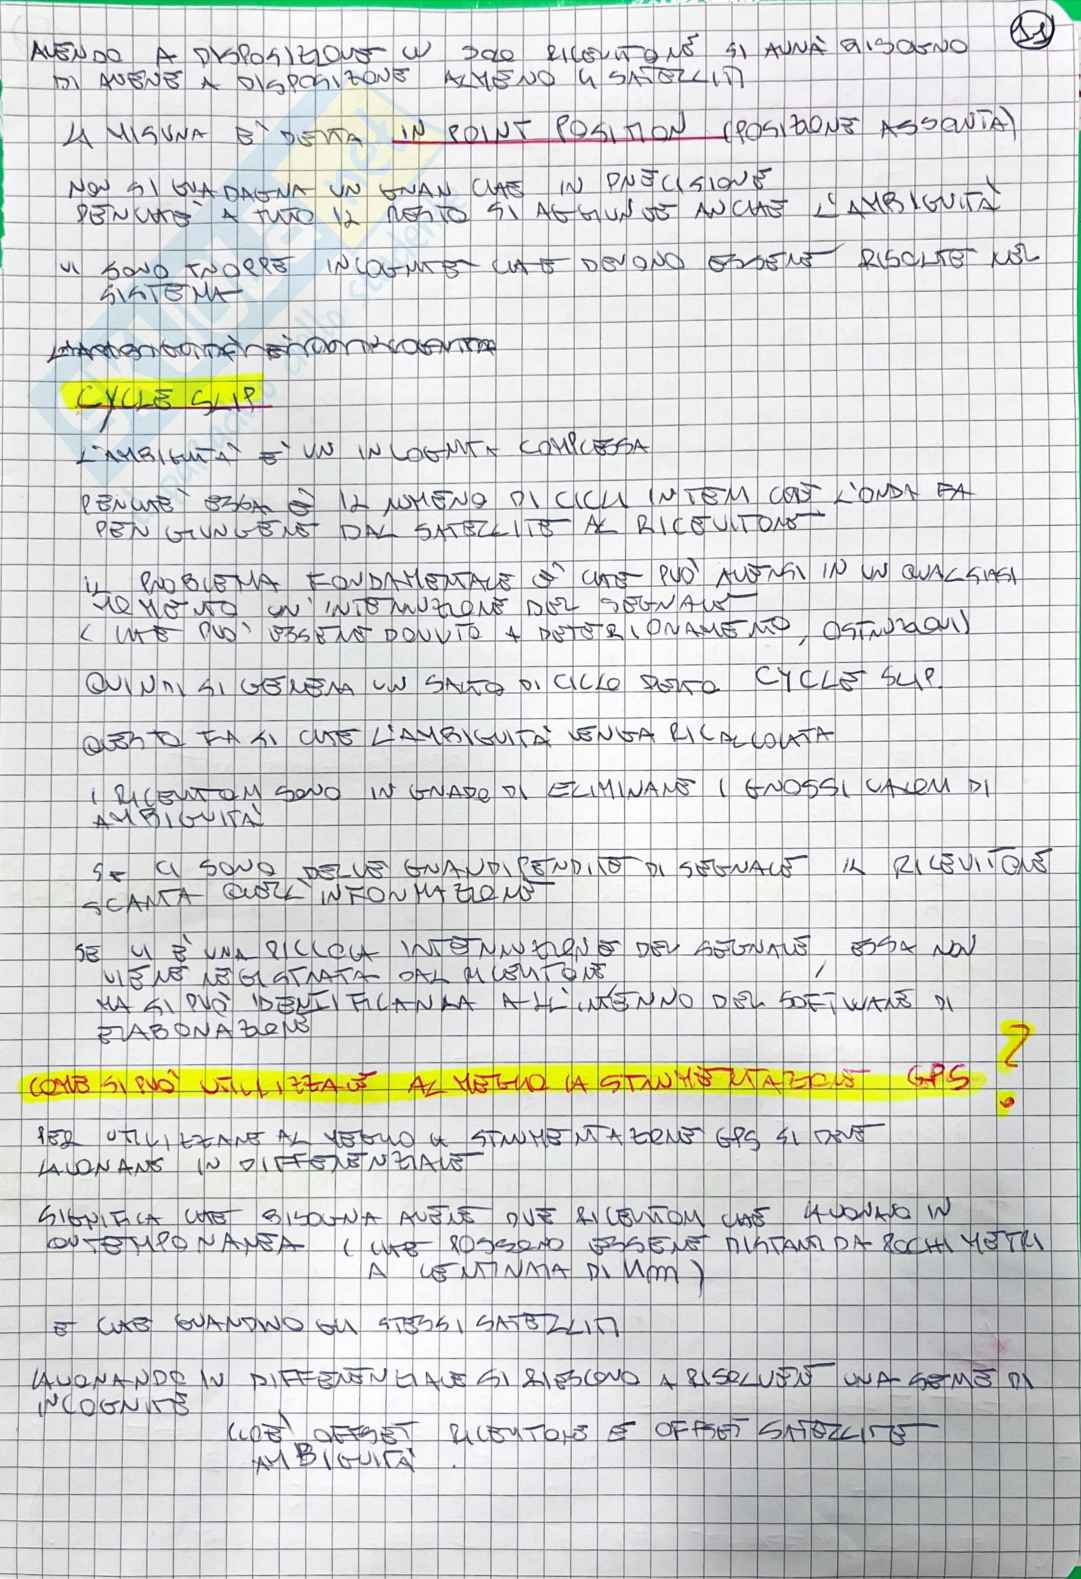 11
AVENDO A DISPOSIZIONE UN SOLO RICEVITORE SI AVRÀ BISOGNO
DI AVERE A DISPOSIZONE ALMENO 4 SATELLITI
LA MISURA E' DETTA IN POINT POSITION (POSIZIONE ASSOLUTA)
NON SI GUADAGNA UN GRAN CHE IN PRECISIONE
PERCHE' A TUTO IL RESTO SI AGGIUNGE ANCHE L'AMBIGUITÀ
VI SONO TROPPE INCOGNITE CHE DEVONO ESSERE RISOLTE NEL
SISTEMA
CYCLE SLIP
L'AMBIGUITA' E' UN INCOGNITA COMPLESSA
PERCHE' ESSA È IL NUMERO DI CICLI INTERI CHE L'ONDA FA
PER GIUNGERE DAL SATELLITE AL RICEVITORE
IL PROBLEMA FONDAMENTALE E' CHE PUO' AVERSI IN UN QUALSIASI
MOMENTO UN'INTERRUZIONE DEL SEGNALE
( CHE PUO' ESSERE DOVUTO A DETERIORAMENTO, OSTRUZIONI)
QUINDI SI GENERA UN SALTO DI CICLO DETTO CYCLE SLIP.
QUESTO FA SI CHE L'AMBIGUITA' VENGA RICALCOLATA
I RICEVITORI SONO IN GRADO DI ELIMINARE I GROSSI VALORI DI
AMBIGUITA'
SE CI SONO DELLE GRANDI PERDITE DI SEGNALE IL RICEVITORE
SCARTA QUELL'INFORMAZIONE
SE VI E' UNA PICCOLA INTERRUZIONE DEL SEGNALE, ESSA NON
VIENE REGISTRATA DAL RICEVITORE
MA SI PUO' IDENTIFICARLA ALL'INTERNO DEL SOFTWARE DI
ELABORAZIONE
COME SI PUO' UTILIZZARE AL MEGLIO LA STRUMENTAZIONE GPS ?
PER UTILIZZARE AL MEGLIO LA STRUMENTAZIONE GPS SI DEVE
LAVORARE IN DIFFERENZIALE
SIGNIFICA CHE BISOGNA AVERE DUE RICEVITORI CHE LAVORANO IN
CONTEMPORANEA ( CHE POSSONO ESSERE DISTANTI DA POCHI METRI
A CENTINAIA DI KM )
E CHE GUARDINO GLI STESSI SATELLITI
LAVORANDO IN DIFFERENZIALE SI RIESCONO A RISOLVERE UNA SERIE DI
INCOGNITE
CIOÈ OFFSET RICEVITORE E OFFSET SATELLITE
AMBIGUITA'.